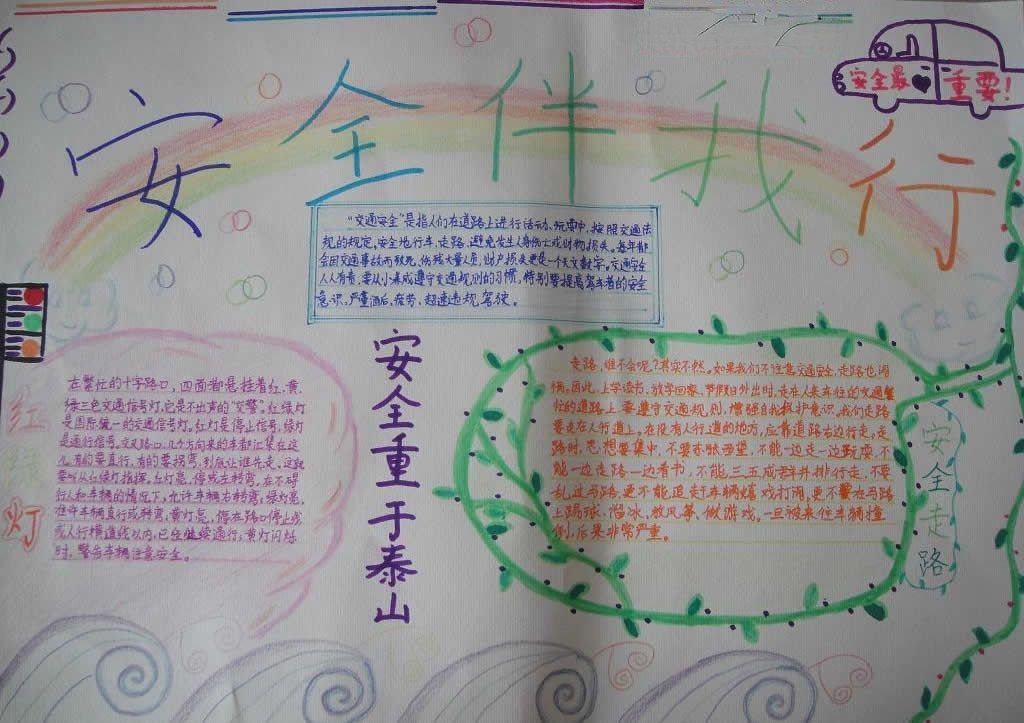 安全伴我行
安全最重要!
“交通安全”是指人们在道路上进行活动、玩耍中,按照交通法
规的规定,安全地行车、走路,避免发生人身伤亡或财物损失。每年都
会因交通事故而致死、伤残大量人员,财产损失更是一个天文数字。交通安全
人人有责,要从小养成遵守交通规则的习惯,特别要提高驾车者的安全
意识,严重酒后、疲劳、超速违规驾驶。
红
绿
灯
在繁忙的十字路口,四面都悬挂着红、黄、
绿三色交通信号灯,它是不出声的“交警”。红绿灯
是国际统一的交通信号灯。红灯是停止信号,绿灯
是通行信号。交叉路口,几个方向来的车都汇集在这
儿,有的要直行,有的要拐弯,到底让谁先走,这就
要听从红绿灯指挥。红灯亮,停或左转弯,在不碍
行人和车辆的情况下,允许车辆右转弯;绿灯亮,
准许车辆直行或转弯;黄灯亮,停在路口停止线
或人行横道线以内,已经继续通行;黄灯闪烁
时,警告车辆注意安全。
安全重于泰山
走路,谁不会呢?其实不然。如果我们不注意交通安全,走路也闯
祸。因此,上学读书、放学回家、节假日外出时,走在人来车往的交通繁
忙的道路上,要遵守交通规则,增强自我救护意识,我们走路
要走在人行道上。在没有人行道的地方,应靠道路右边行走。走
路时,思想要集中,不要东张西望,不能一边走一边玩耍,不
能一边走路一边看书,不能三五成群并排行走,不要
乱过马路,更不能追赶车辆嬉戏打闹,更不要在马路
上踢球、溜冰、放风筝、做游戏。一旦被来往车辆撞
倒,后果非常严重。
安全走路